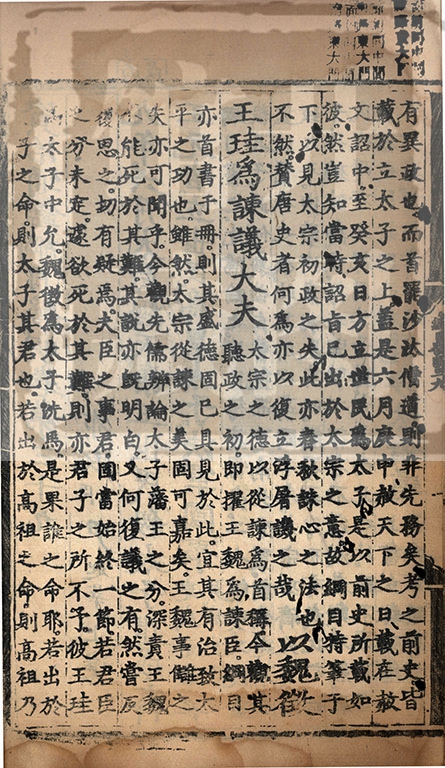 有異政也而首罷沙汰僧道則非先務矣考之前史皆
載於立太子之上蓋是六月庚申赦天下之日載在赦
文詔中至癸亥日方立世民爲太子是以前史所載如
彼然豈知當時詔旨已出於太宗之意故綱目特筆于
下以見太宗初政之失此亦春秋誅心之法也
不然贊唐史者何爲亦以復立浮屠譏之哉以魏徵
王珪爲諫議大夫
太宗之德以從諫爲首稱今觀其
聽政之初即擢王魏爲諫臣綱目
亦首書于冊則其盛德固已具見於此宜其有治致太
平之功也雖然太宗從諫之美固可嘉矣王魏事讎之
失亦可聞乎今觀先儒辨論太子藩王之分深責王魏
能死於其難其說亦旣明白又何復議之有然嘗反
復思之切有疑焉夫臣之事君固當始終一節若君臣
之分未定遽欲死於其難則亦君子之所不予彼王珪
爲太子中允魏徵爲太子洗馬是果誰之命耶若出於
子之命則太子其君也若出於高祖之命則高祖乃